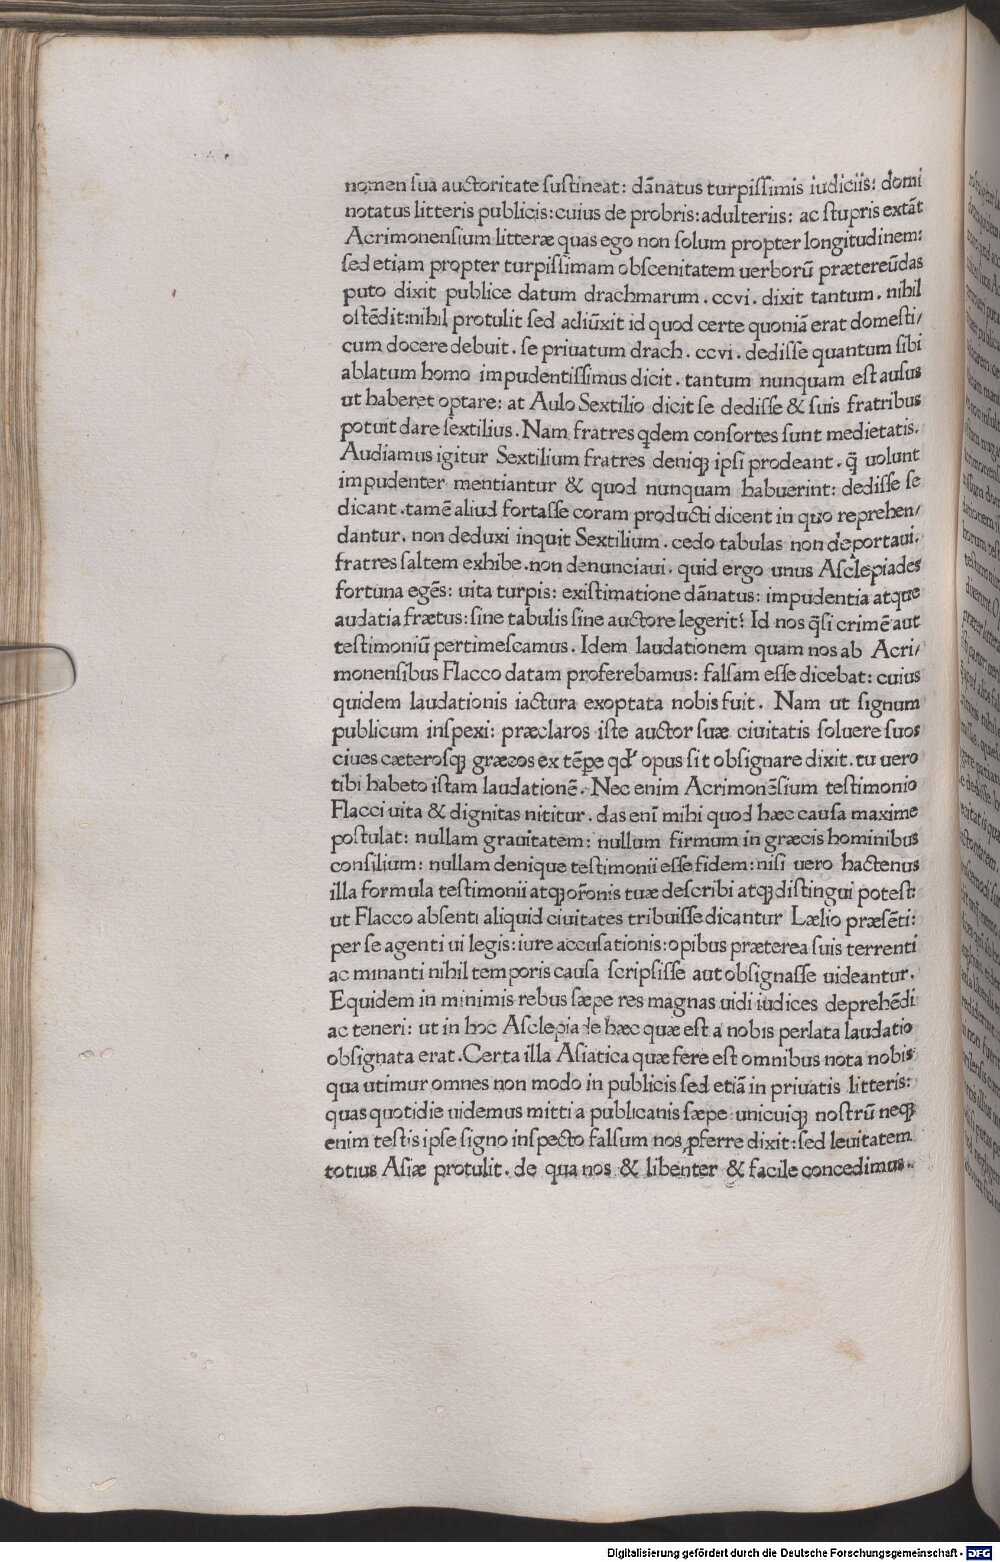 nomen ſua auctoritate ſuſtineat: dãnatus turpiſſimis iudiciis: domi
notatus litteris publicis: cuius de probris: adulteriis: ac ſtupris extãt
Acrimonenſium litteræ quas ego non ſolum propter longitudinem:
ſed etiam propter turpiſſimam obſcenitatem uerborũ prætereũdas
puto dixit publice datum drachmarum . ccvi . dixit tantum . nihil
oſtẽdit: nihil protulit ſed adiũxit id quod certe quoniã erat domeſti/
cum docere debuit . ſe priuatum drach . ccvi . dediſſe quantum ſibi
ablatum homo impudentiſſimus dicit . tantum nunquam eſt auſus
ut haberet optare: at Aulo Sextilio dicit ſe dediſſe & ſuis fratribus
potuit dare ſextilius . Nam fratres qdem conſortes ſunt medietatis.
Audiamus igitur Sextilium fratres deniqꝫ ipſi prodeant . q̃ uolunt
impudenter mentiantur & quod nunquam habuerint: dediſſe ſe
dicant . tamẽ aliud fortaſſe coram producti dicent in quo reprehen/
dantur . non deduxi inquit Sextilium . cedo tabulas non deportaui.
fratres ſaltem exhibe . non denunciaui . quid ergo unus Aſclepiades
fortuna egẽs: uita turpis: exiſtimatione dãnatus: impudentia atque
audatia frætus: ſine tabulis ſine auctore legerit? Id nos q̃ſi crimẽ aut
teſtimoniũ pertimeſcamus . Idem laudationem quam nos ab Acri/
monenſibus Flacco datam proferebamus: falſam eſſe dicebat: cuius
quidem laudationis iactura exoptata nobis fuit . Nam ut ſignum
publicum inſpexi: præclaros iſte auctor ſuæ ciuitatis ſoluere ſuos
ciues cæteroſqꝫ græcos ex tẽpe qd' opus ſit obſignare dixit . tu uero
tibi habeto iſtam laudationẽ . Nec enim Acrimonẽſium teſtimonio
Flacci uita & dignitas nititur . das eni᷑ mihi quod hæc cauſa maxime
poſtulat: nullam grauitatem: nullum firmum in græcis hominibus
conſilium: nullam denique teſtimonii eſſe fidem: niſi uero hactenus
illa formula teſtimonii atqꝫ or̃onis tuæ deſcribi atqꝫ diſtingui poteſt:
ut Flacco abſenti aliquid ciuitates tribuiſſe dicantur Lælio præſẽti:
per ſe agenti ui legis: iure accuſationis: opibus præterea ſuis terrenti
ac minanti nihil temporis cauſa ſcripſiſſe aut obſignaſſe uideantur.
Equidem in minimis rebus ſæpe res magnas uidi iudices deprehẽdi
ac teneri: ut in hoc Aſclepiade hæc quæ eſt a nobis perlata laudatio
obſignata erat . Certa illa Aſiatica quæ fere eſt omnibus nota nobis
qua utimur omnes non modo in publicis ſed etiã in priuatis litteris:
quas quotidie uidemus mitti a publicanis ſæpe unicuiqꝫ noſtrũ neqꝫ
enim teſtis ipſe ſigno inſpecto falſum nos ꝓferre dixit: ſed leuitatem
totius Aſiæ protulit . de qua nos & libenter & facile concedimus .
Digitalisierung gefördert durch die Deutsche Forschungsgemeinschaft - DFG